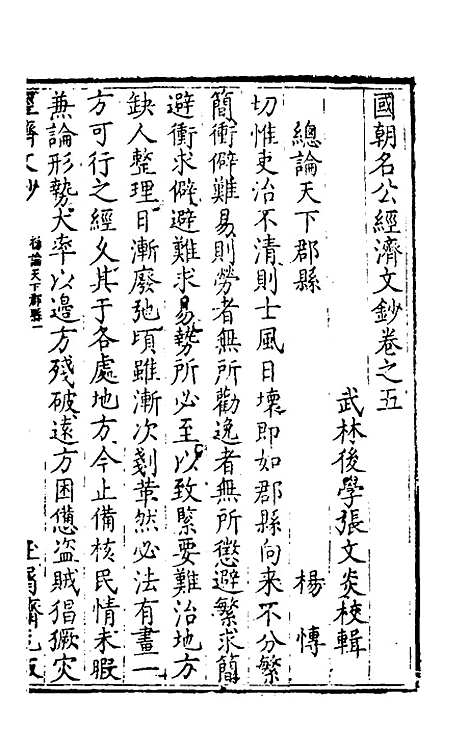 國朝名公經濟文鈔卷之五
武林後學張文炎校輯
總論天下郡縣 楊博
切惟吏治不清則士風日壞即如郡縣向来不分繁
簡衝僻難易則勞者無所勸逸者無所懲避繁求簡
避衝求僻避難求易勢所必至以致緊要難治地方
缺人整理日漸廢弛頃雖漸次剗革然必法有畫一
方可行之經久其于各處地方今止備核民情未暇
兼論形勢大率以邊方殘破遠方困憊盗賊猖獗灾
經濟文抄 總論天下郡縣一